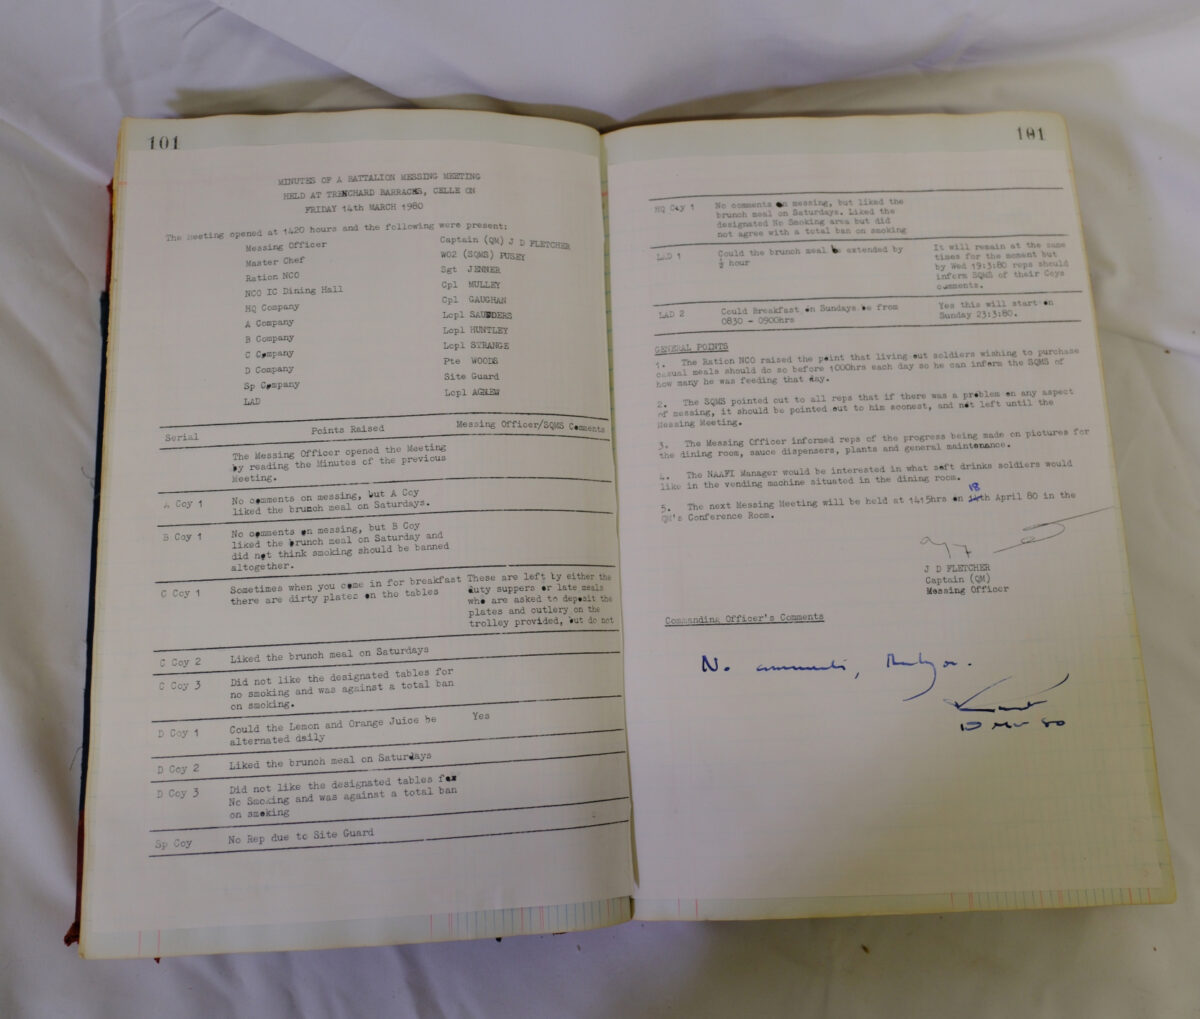 101
MINUTES OF A BATTALION MESSING MEETING
HELD AT TRENCHARD BARRACKS, CELLE ON
FRIDAY 14th MARCH 1980
The meeting opened at 1420 hours and the following were present:
Messing Officer Captain (QM) J D FLETCHER
Master Chef WO2 (SQMS) PUSEY
Ration NCO Sgt JENNER
NCO IC Dining Hall Cpl MULLEY
HQ Company Cpl GAUGHAN
A Company Lcpl SAUNDERS
B Company Lcpl HUNTLEY
C Company Lcpl STRANGE
D Company Pte WOODS
Sp Company Site Guard
LAD Lcpl AGNEW
Serial Points Raised Messing Officer/SQMS Comments
The Messing Officer opened the Meeting
by reading the Minutes of the previous
Meeting.
A Coy 1 No comments on messing, but A Coy
liked the brunch meal on Saturdays.
B Coy 1 No comments on messing, but B Coy
liked the brunch meal on Saturday and
did not think smoking should be banned
altogether.
C Coy 1 Sometimes when you come in for breakfast These are left by either the
there are dirty plates on the tables duty suppers or late meals
who are asked to deposit the
plates and cutlery on the
trolley provided, but do not
C Coy 2 Liked the brunch meal on Saturdays
C Coy 3 Did not like the designated tables for
no smoking and was against a total ban
on smoking.
D Coy 1 Could the Lemon and Orange Juice be Yes
alternated daily
D Coy 2 Liked the brunch meal on Saturdays
D Coy 3 Did not like the designated tables for
No Smoking and was against a total ban
on smoking
Sp Coy No Rep due to Site Guard
101
HQ Coy 1 No comments on messing, but liked the
brunch meal on Saturdays. Liked the
designated No Smoking area but did
not agree with a total ban on smoking
LAD 1 Could the brunch meal be extended by It will remain at the same
½ hour times for the moment but
by Wed 19:3:80 reps should
inform SQMS of their Coys
comments.
LAD 2 Could Breakfast on Sundays be from Yes this will start on
0830 - 0900hrs Sunday 23:3:80.
GENERAL POINTS
1. The Ration NCO raised the point that living out soldiers wishing to purchase
casual meals should do so before 1000hrs each day so he can inform the SQMS of
how many he was feeding that day.
2. The SQMS pointed out to all reps that if there was a problem on any aspect
of messing, it should be pointed out to him soonest, and not left until the
Messing Meeting.
3. The Messing Officer informed reps of the progress being made on pictures for
the dining room, sauce dispensers, plants and general maintenance.
4. The NAAFI Manager would be interested in what soft drinks soldiers would
like in the vending machine situated in the dining room.
18
5. The next Messing Meeting will be held at 1415hrs on 14th April 80 in the
QM's Conference Room.
J D FLETCHER
Captain (QM)
Messing Officer
Commanding Officer's Comments
No comments, thank you.
80